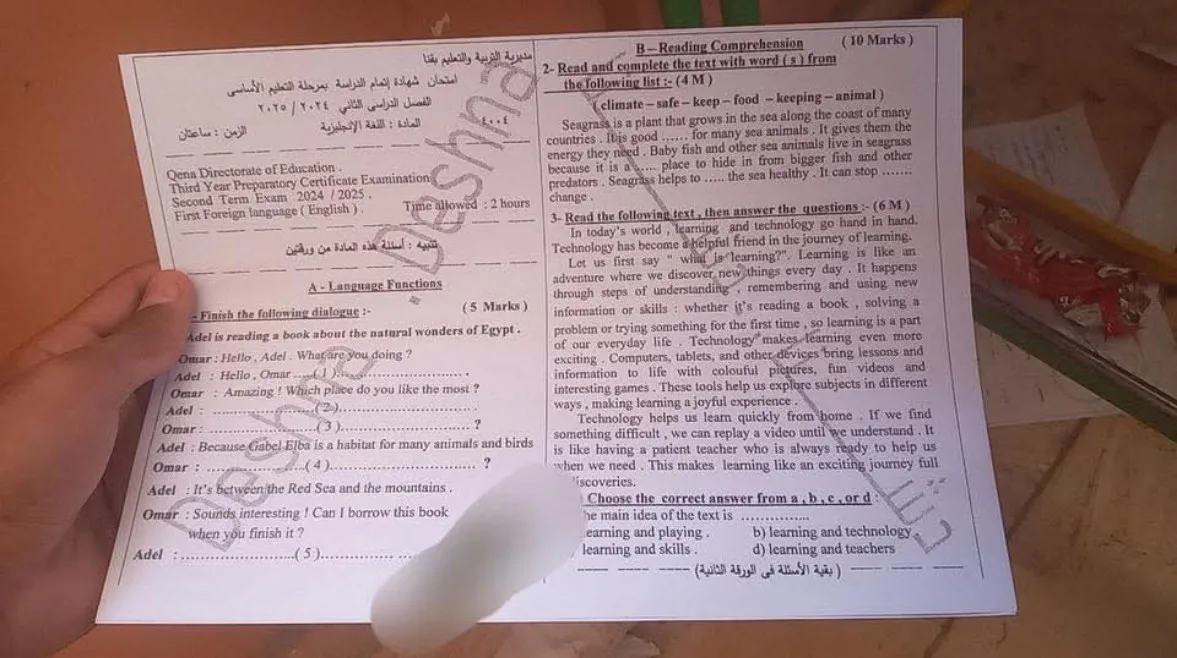 مديرية التربية والتعليم بقنا
امتحان شهادة إتمام الدراسة بمرحلة التعليم الأساسى
الفصل الدراسى الثانى ٢٠٢٤ / ٢٠٢٥
٤٠٠٤ المادة : اللغة الإنجليزية الزمن : ساعتان
Qena Directorate of Education .
Third Year Preparatory Certificate Examination
Second Term Exam 2024 / 2025 .
First Foreign language ( English ) . Time allowed : 2 hours
تنبيه : أسئلة هذه المادة من ورقتين
A - Language Functions
- Finish the following dialogue :- ( 5 Marks )
Adel is reading a book about the natural wonders of Egypt .
Omar : Hello , Adel . What are you doing ?
Adel : Hello , Omar .....( 1 )............................... .
Omar : Amazing ! Which place do you like the most ?
Adel : ......................( 2 )............................... .
Omar : ......................( 3 )............................... ?
Adel : Because Gabel Elba is a habitat for many animals and birds
Omar : .....................( 4 )............................... ?
Adel : It's between the Red Sea and the mountains .
Omar : Sounds interesting ! Can I borrow this book
when you finish it ?
Adel : ........................( 5 )...................
B – Reading Comprehension ( 10 Marks )
2- Read and complete the text with word ( s ) from
the following list :- (4 M )
( climate – safe – keep – food – keeping – animal )
Seagrass is a plant that grows in the sea along the coast of many
countries . It is good ...... for many sea animals . It gives them the
energy they need . Baby fish and other sea animals live in seagrass
because it is a ..... place to hide in from bigger fish and other
predators . Seagrass helps to ..... the sea healthy . It can stop .......
change .
3- Read the following text , then answer the questions :- (6 M )
In today's world , learning and technology go hand in hand.
Technology has become a helpful friend in the journey of learning.
Let us first say " what is learning?". Learning is like an
adventure where we discover new things every day . It happens
through steps of understanding , remembering and using new
information or skills : whether it's reading a book , solving a
problem or trying something for the first time , so learning is a part
of our everyday life . Technology makes learning even more
exciting . Computers, tablets, and other devices bring lessons and
information to life with colouful pictures, fun videos and
interesting games . These tools help us explore subjects in different
ways , making learning a joyful experience .
Technology helps us learn quickly from home . If we find
something difficult , we can replay a video until we understand . It
is like having a patient teacher who is always ready to help us
when we need . This makes learning like an exciting journey full
iscoveries.
Choose the correct answer from a , b , c , or d :
he main idea of the text is ..............
earning and playing . b) learning and technology
learning and skills . d) learning and teachers
( بقية الأسئلة فى الورقة الثانية )
Deshna
Deshna
دشنا